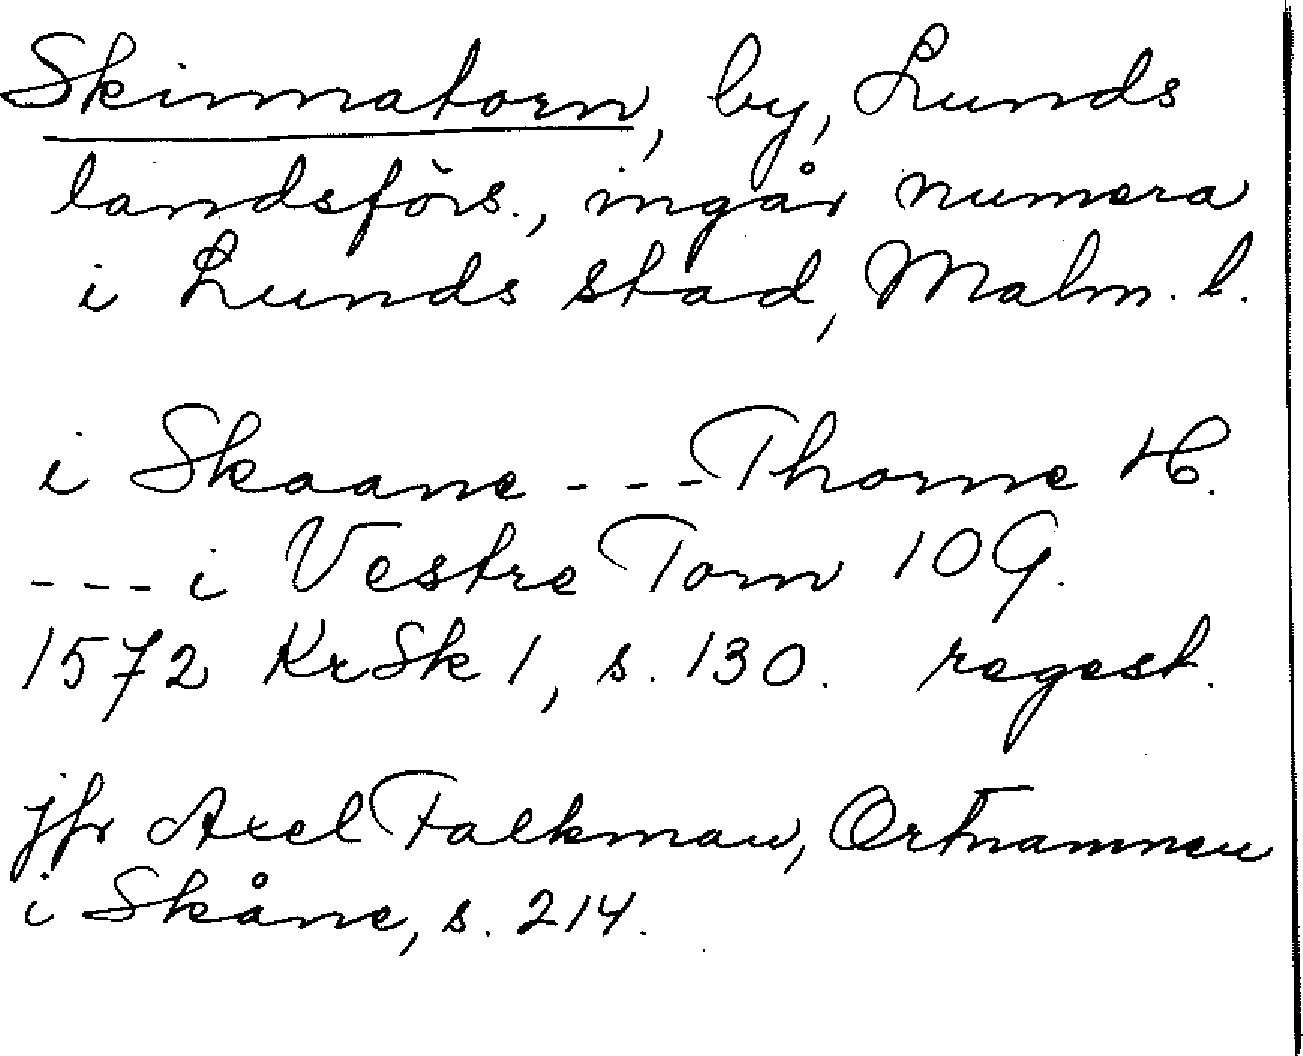 Skinnatorn, by, Lunds
landsförs., ingår numera
i Lunds stad, Malm. l.
i Skaane --- Thorne H.
--- i Vestre Torn 10 G.
1572 KrSk 1, s. 130. regest.
jfr Axel Falkman, Ortnamnen
i Skåne, s. 214.